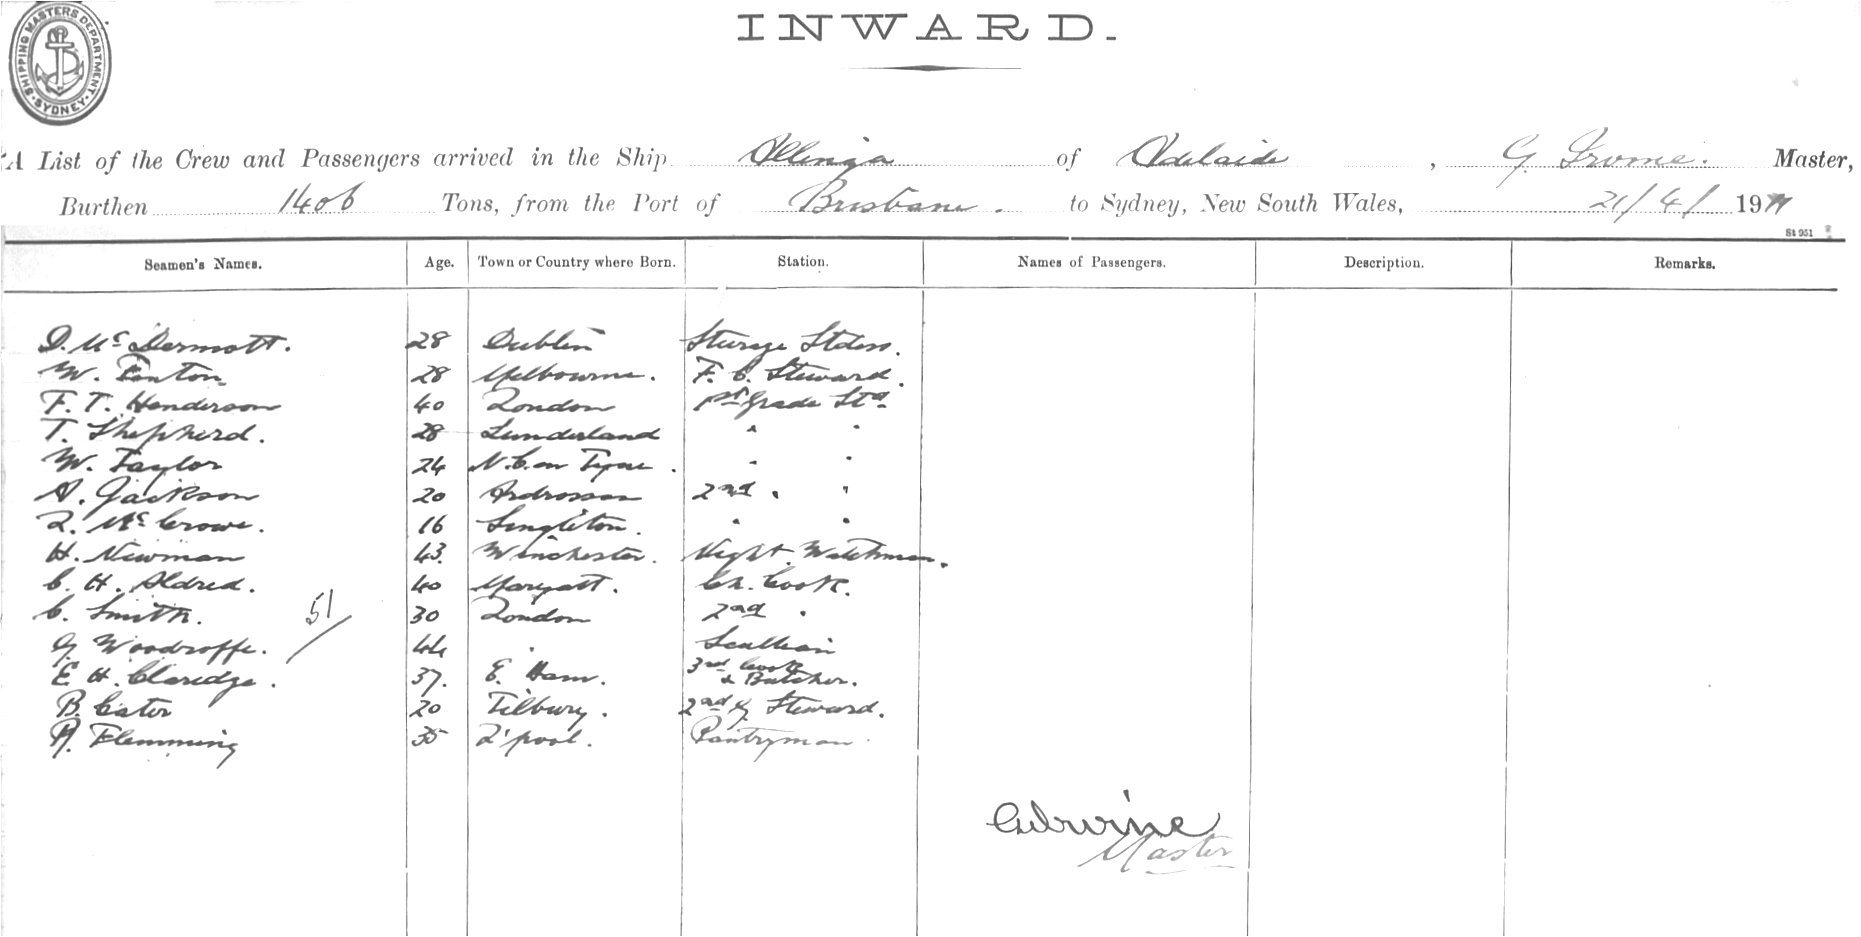 SHIPPING MASTERS DEPARTMENT
SYDNEY
INWARD.
A List of the Crew and Passengers arrived in the Ship Allinga of Adelaide, G. Irvine. Master,
Burthen 1406 Tons, from the Port of Brisbane. to Sydney, New South Wales, 21/4/ 19
St 951
Seamen's Names. Age. Town or Country where Born. Station. Names of Passengers. Description. Remarks.
D. McDermott. 28 Dublin
W. Fenton 28 Melbourne. F. C. Steward.
F. T. Henderson 40 London 1st Grade Std
T. Shepherd. 28 Sunderland " "
W. Taylor 24 N.C. on Tyne. " "
A. Jackson 20 Ardrossan 2nd " "
L. McCrowe. 16 Singleton. " "
H. Newman 43. Winchester. Night Watchman.
C. H. Aldred. 40 Margatt. Ch. Cook.
C. Smith. 30 London 2nd "
51/
G. Woodroffe. 44 " Scullion
E. H. Claridge. 37. E. Ham. 3rd Cook & Butcher.
B. Cater 20 Tilbury. 2nd G. Steward.
Flemming 35 L'pool. Pantryman
G Irvine
Master